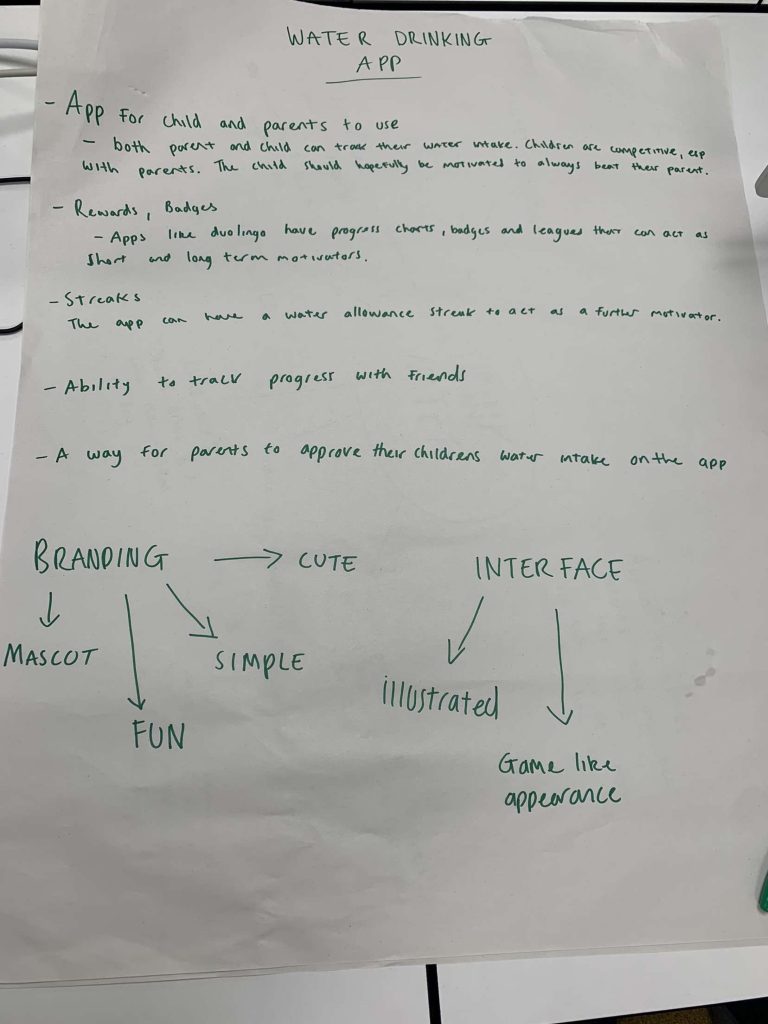 WATER DRINKING
APP
- App For child and parents to use
- both parent and child can track their water intake. Children are competitive, esp
with parents. The child should hopefully be motivated to always beat their parent.
- Rewards, Badges
- Apps like duolingo have progress charts, badges and leagues that can act as
short and long term motivators.
- Streaks
The app can have a water allowance streak to act as a further motivator.
- Ability to track progress with friends
- A way for parents to approve their childrens water intake on the app
BRANDING → CUTE
INTERFACE
MASCOT
SIMPLE
illustrated
FUN
Game like
appearance